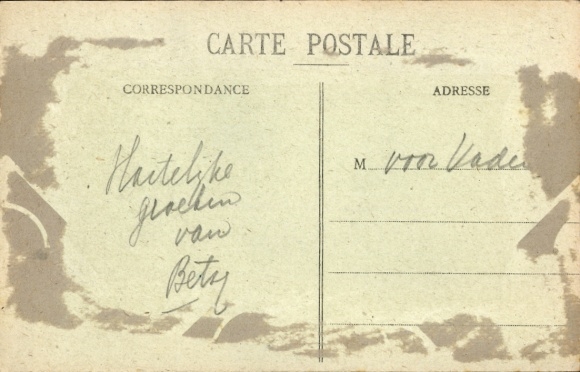 CARTE POSTALE
CORRESPONDANCE
ADRESSE
Hartelijke
groeten
van
Betsy
M voor Vader